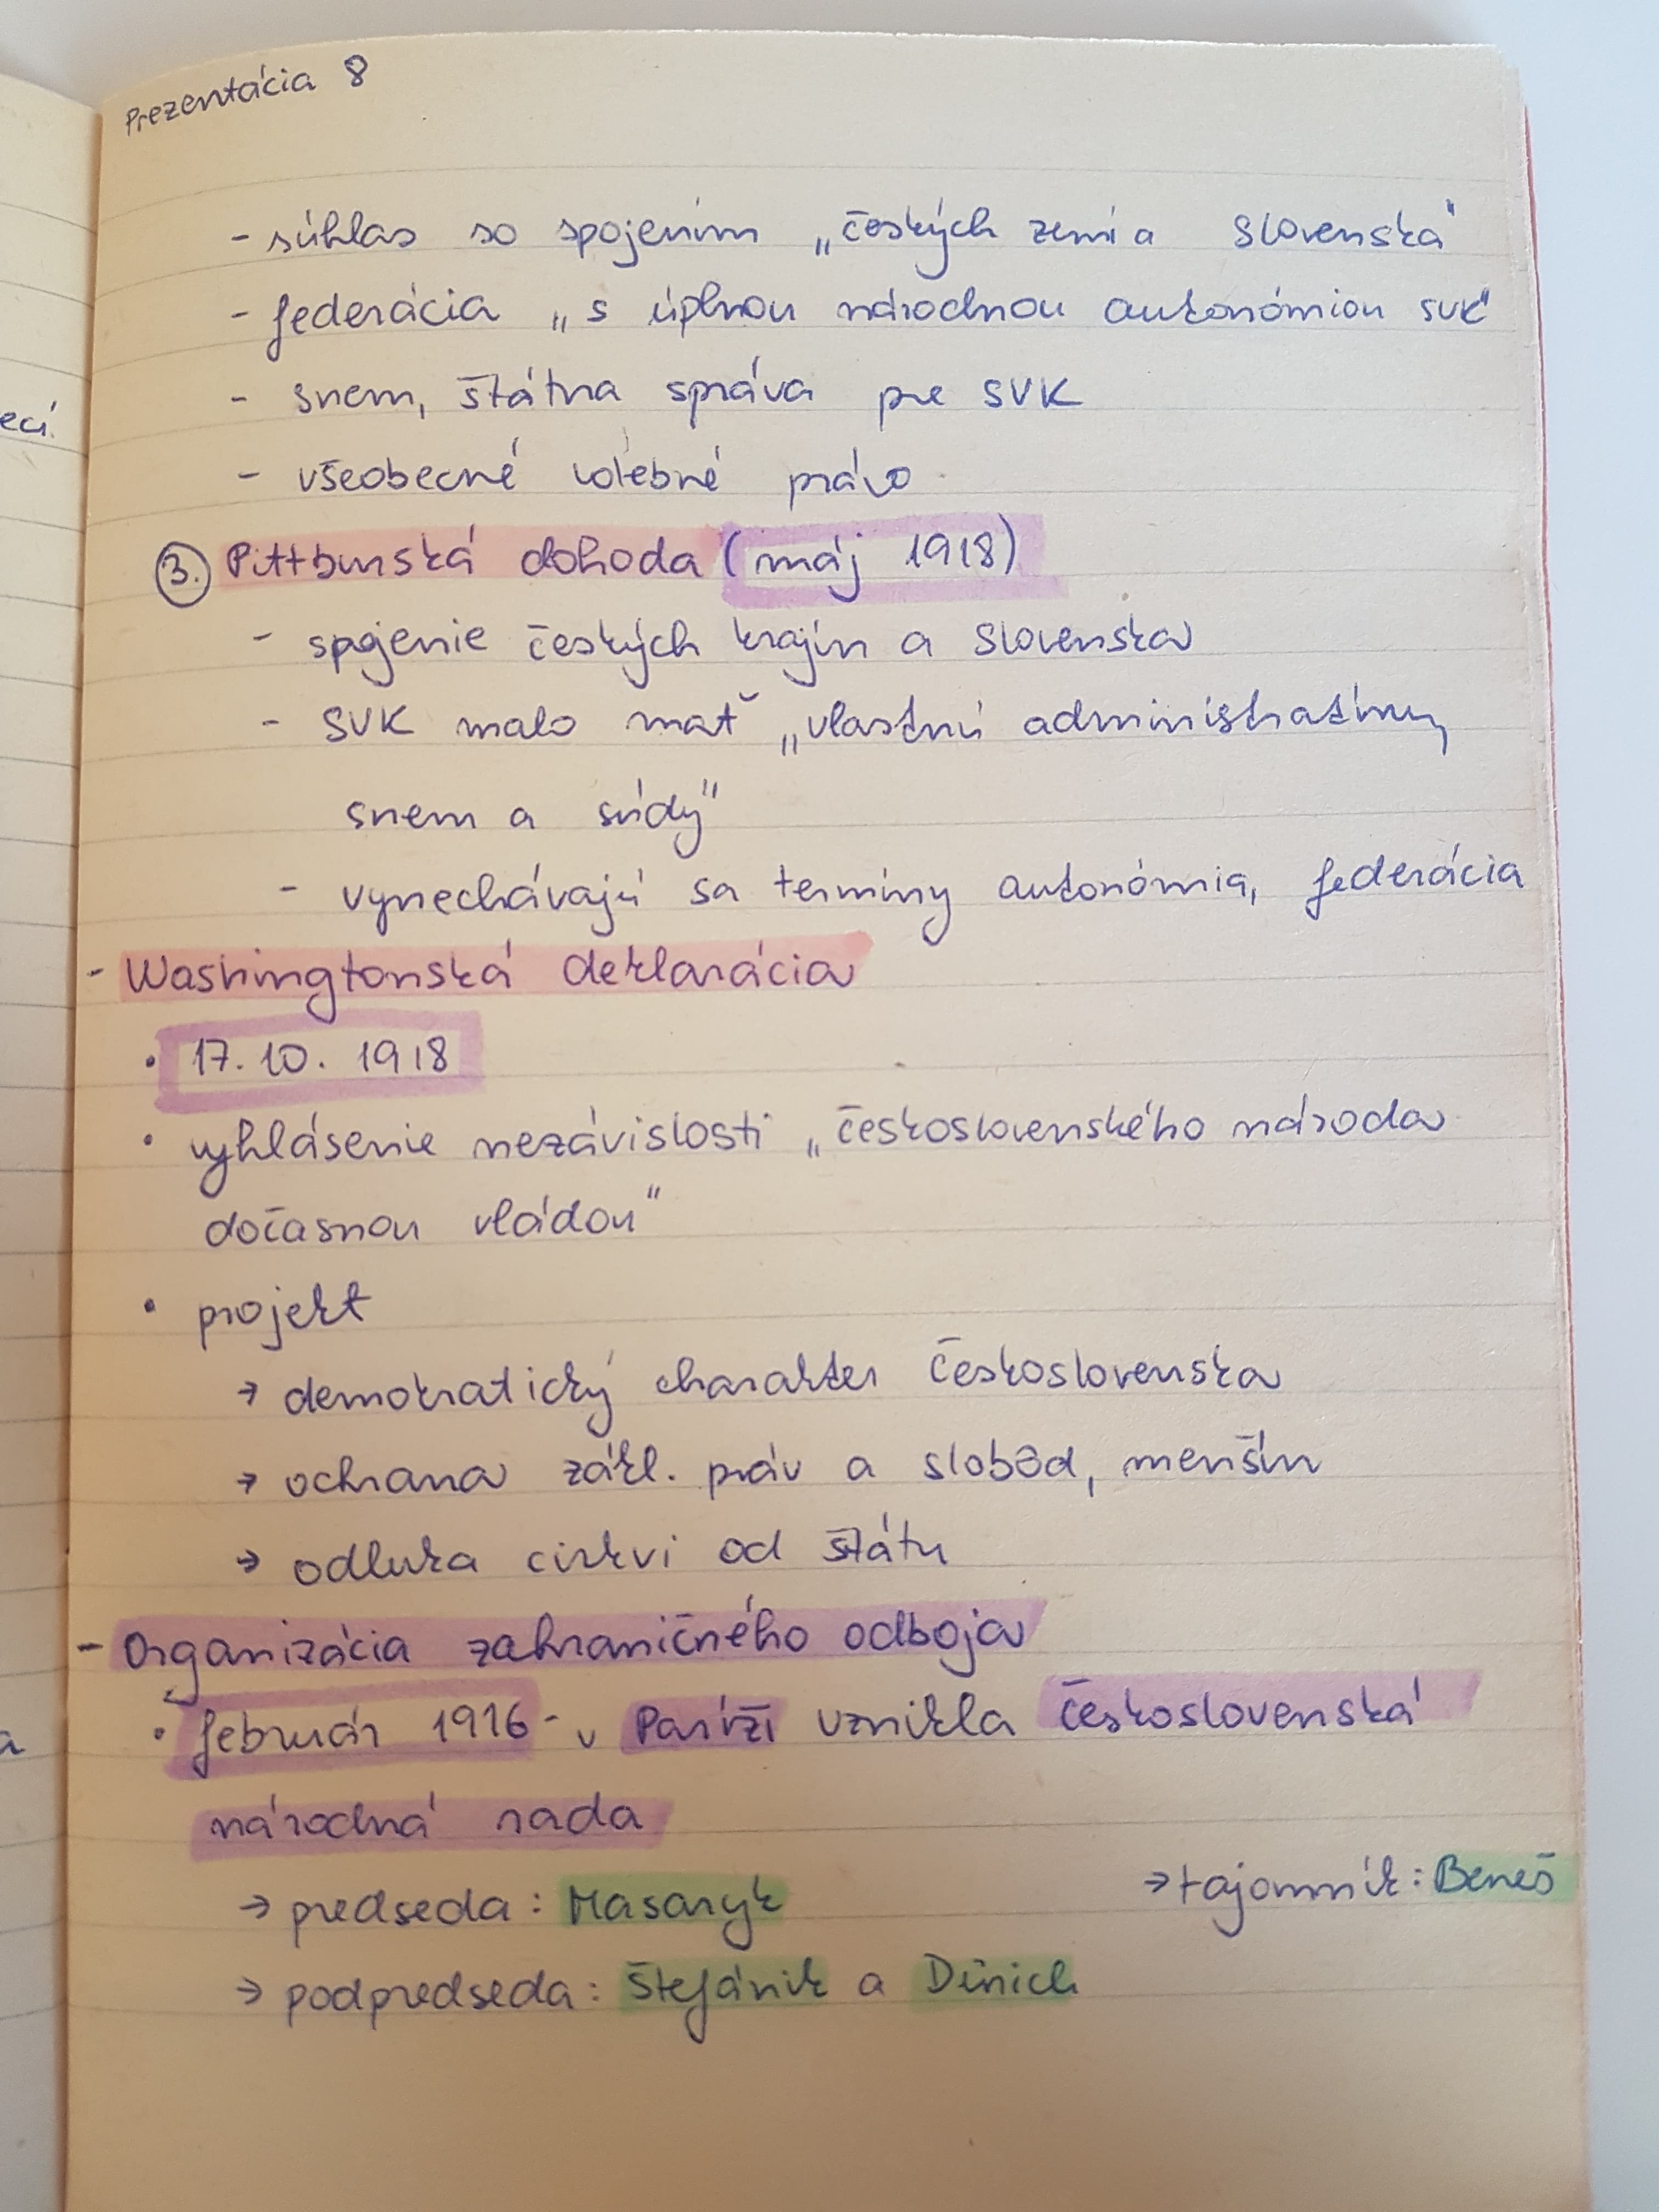 Prezentácia 8
- súhlas so spojením „českých zemí a Slovenska"
- federácia „s úplnou národnou autonómiou SVK"
- snem, štátna správa pre SVK
- všeobecné volebné právo
3. Pittburská dohoda (máj 1918)
- spojenie českých krajín a Slovenska
- SVK malo mať „vlastnú administratívu,
snem a súdy"
- vynechávajú sa termíny autonómia, federácia
- Washingtonská deklarácia
• 17. 10. 1918
• vyhlásenie nezávislosti „československého národa
dočasnou vládou"
• projekt
→ demokratický charakter Československa
→ ochrana zákl. práv a slobôd, menšín
→ odluka cirkvi od štátu
- Organizácia zahraničného odboja
• február 1916 - v Paríži vznikla Československá
národná rada
→ predseda: Masaryk → tajomník: Beneš
→ podpredseda: Štefánik a Dürich
ecí.
a